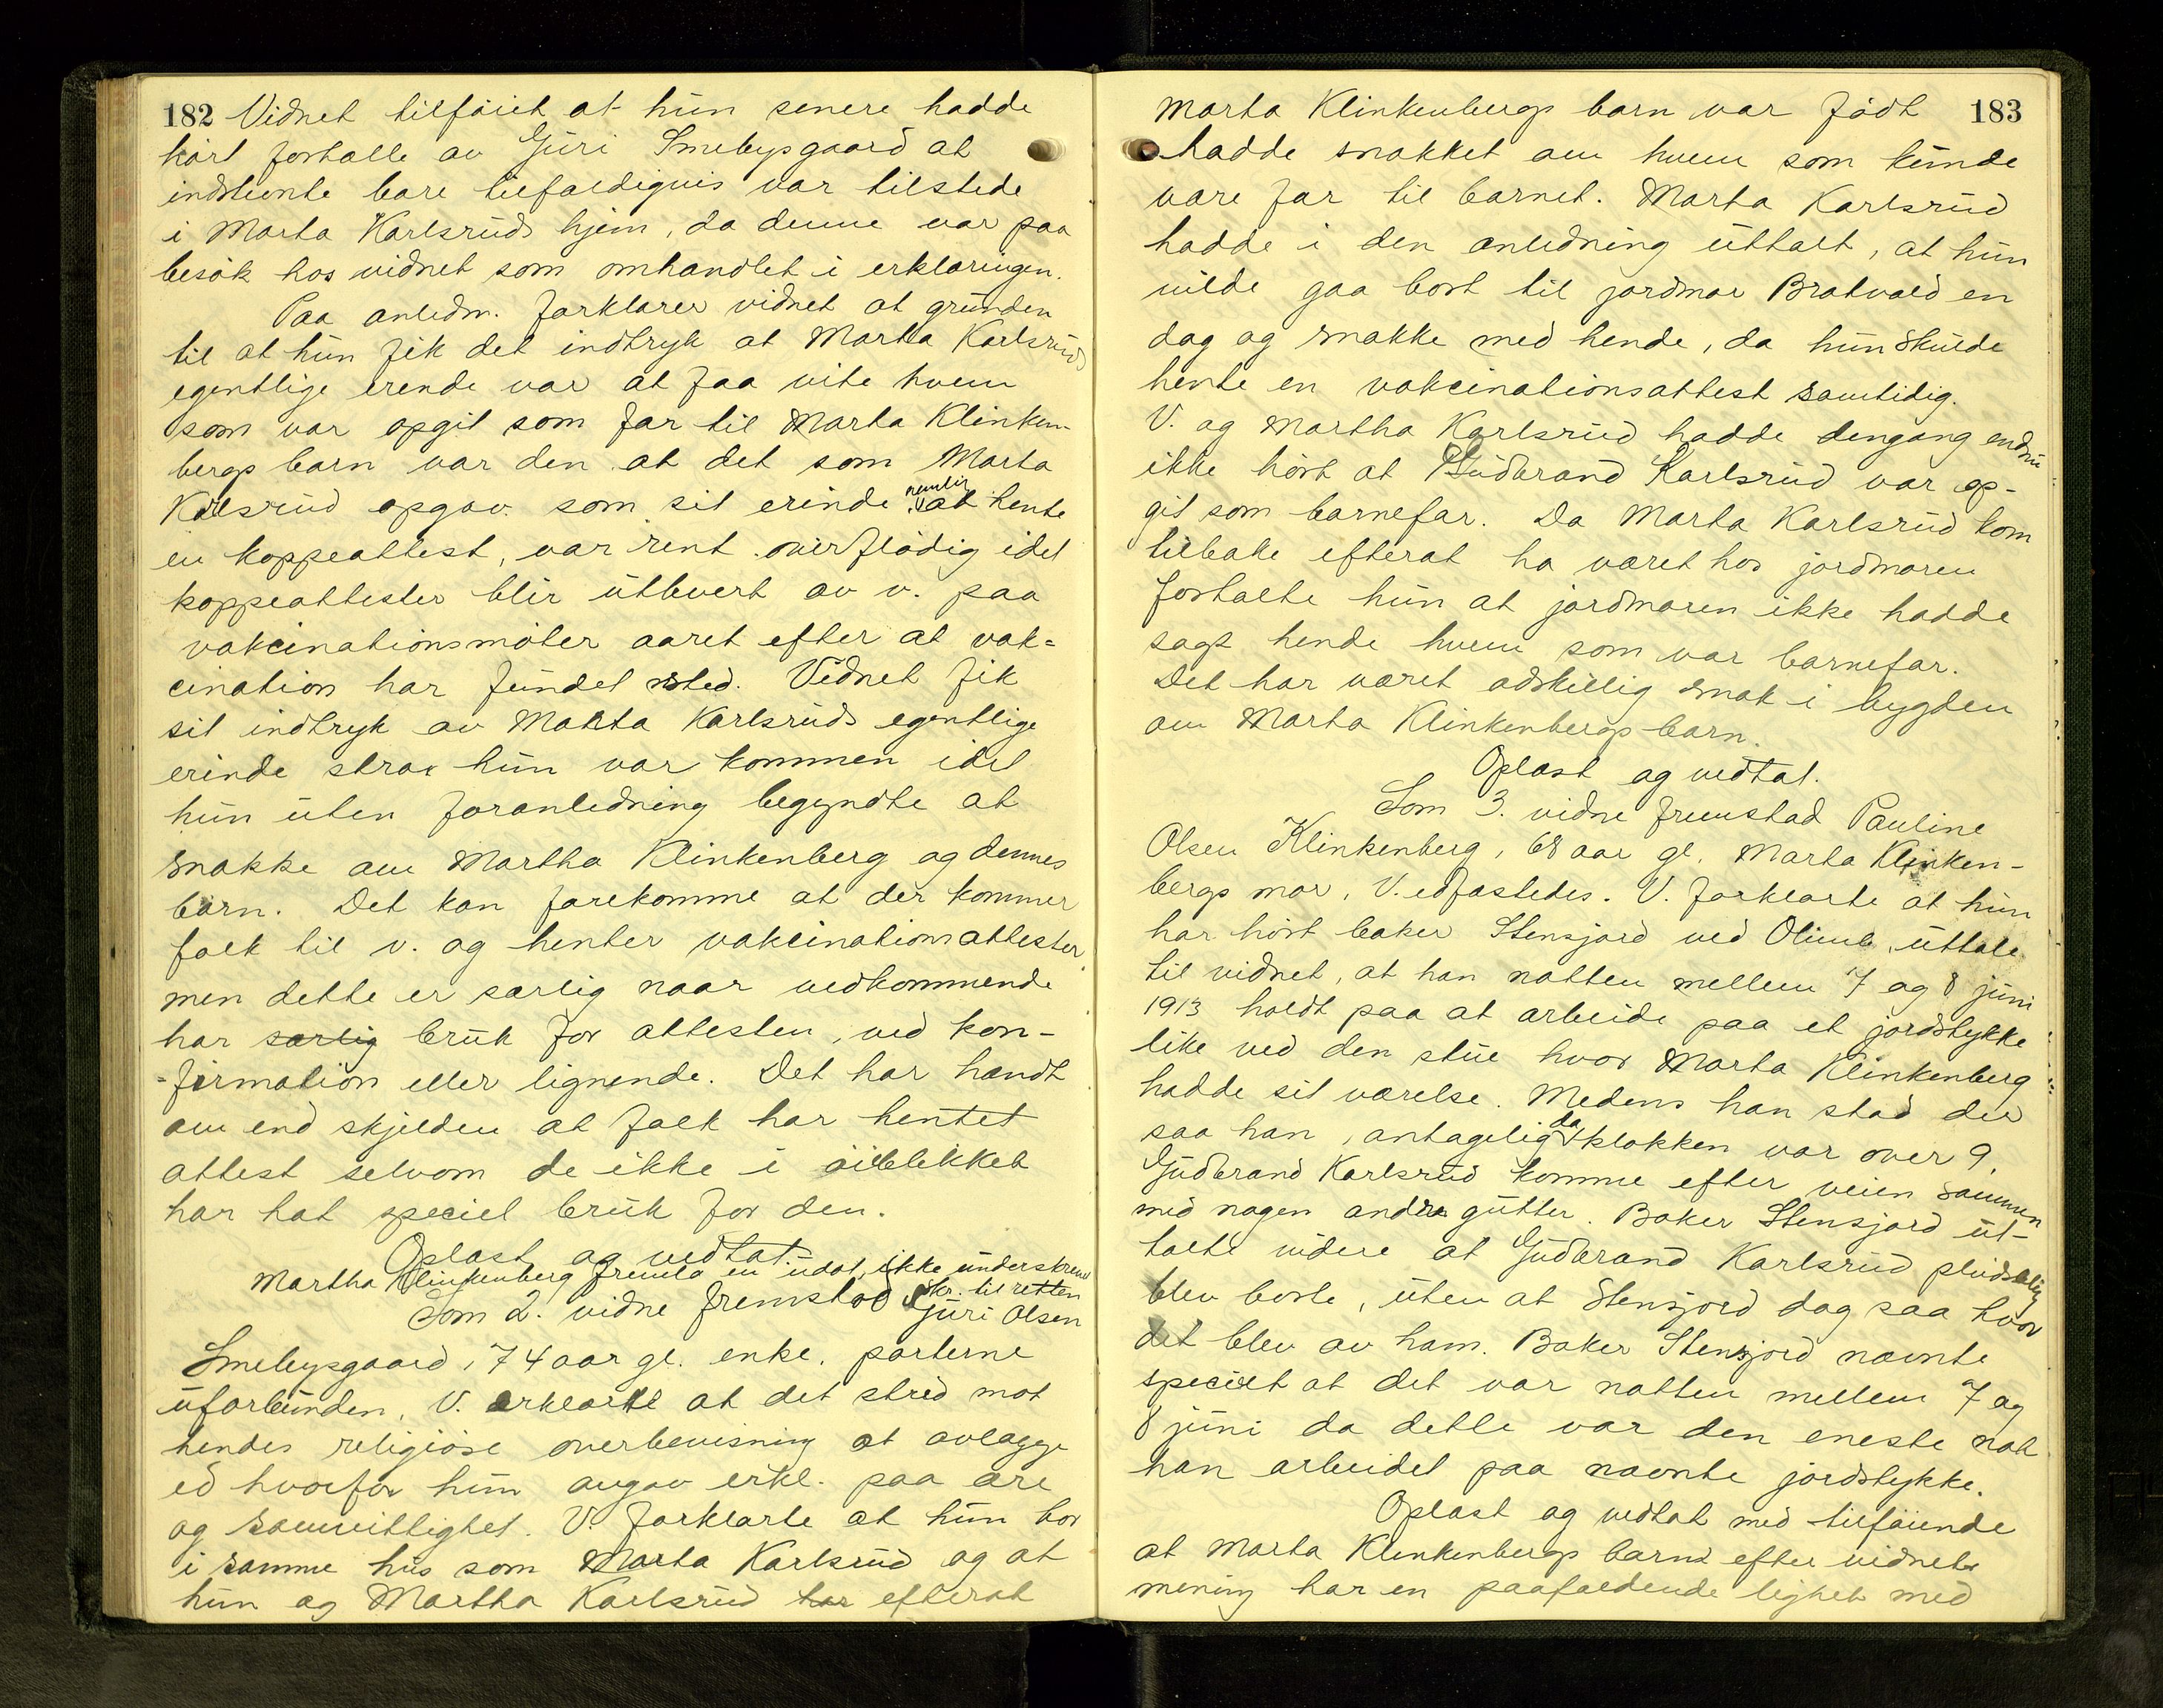 182 Vidnet tilføiet at hun senere hadde
hørt fortalle av Guri Smebysgaard at
indstevnte bare tilfældigvis var tilstede
i Marta Karlsruds hjem, da denne var paa
besøk hos vidnet som omhandlet i erklæringen.
Paa anledn. forklarer vidnet at grunden
til at hun fik det indtryk at Marta Karlsruds
egentlige erende var at faa vite hvem
som var opgit som far til Marta Klinken-
bergs barn var den at det som Marta
Karlsrud opgav som sit erinde nemlig at hente
en koppeattest, var rent overflødig idet
koppeattester blir utlevert av v. paa
vakcinationsmøter aaret efter at vak=
cination har fundet sted. Vidnet fik
sit indtryk av Marta Karlsruds egentlige
erinde strax hun var kommen idet
hun uten foranledning begyndte at
snakke om Martha Klinkenberg og dennes
barn. Det kan forekomme at der kommer
folk til v. og henter vakcinationsattester
men dette er særlig naar vedkommende
har særlig bruk for attesten, ved kon-
-firmation eller lignende. Det har hændt
om end skjelden at folk har hentet
attest selvom de ikke i øieblikket
har hat speciel bruk for den.
Oplæst og vedtat.
Martha Klinkenberg fremla en udat, ikke underskrevet
skr. til retten
Som 2. vidne fremstod Guri Olsen
Smebysgaard, 74 aar gl. enke. parterne
uforbunden. V. erklærte at det stred mot
hendes religiøse overbevisning at avlægge
ed hvorfor hun avgav erkl. paa ære
og samvittighet. V. forklarte at hun bor
i samme hus som Marta Karlsrud og at
hun og Martha Karlsrud har efterat
Marta Klinkenbergs barn var født 183
hadde snakket om hvem som kunde
være far til barnet. Marta Karlsrud
hadde i den anledning uttalt, at hun
vilde gaa bort til jordmor Bratvold en
dag og snakke med hende, da hun skulde
hente en vakcinationsattest samtidig.
V. og Martha Karlsrud hadde dengang endnu
ikke hørt at Gudbrand Karlsrud var op-
git som barnefar. Da Marta Karlsrud kom
tilbake efterat ha været hos jordmoren
fortalte hun at jordmoren ikke hadde
sagt hende hvem som var barnefar.
Det har været adskillig snak i bygden
om Marta Klinkenbergs barn.
Oplæst og vedtat.
Som 3. vidne fremstod Pauline
Olsen Klinkenberg, 68 aar gl. Marta Klinken-
bergs mor. V. edfæstedes. V. forklarte at hun
har hørt baker Stensjord ved Olimb uttale
til vidnet, at han natten mellem 7 og 8 juni
1913 holdt paa at arbeide paa et jordstykke
like ved den stue hvor Marta Klinkenberg
hadde sit værelse. Medens han stod der
saa han, antagelig da klokken var over 9,
Gudbrand Karlsrud komme efter veien sammen
med nogen andre gutter. Baker Stensjord ut-
talte videre at Gudbrand Karlsrud pludselig
blev borte, uten at Stensjord dog saa hvor
det blev av ham. Baker Stensjord nævnte
specielt at det var natten mellem 7 og
8 juni da dette var den eneste nat
han arbeidet paa nævnte jordstykke.
Oplæst og vedtat med tilføiende
at Marta Klinkenbergs barn efter vidnets
mening har en paafaldende lighet med